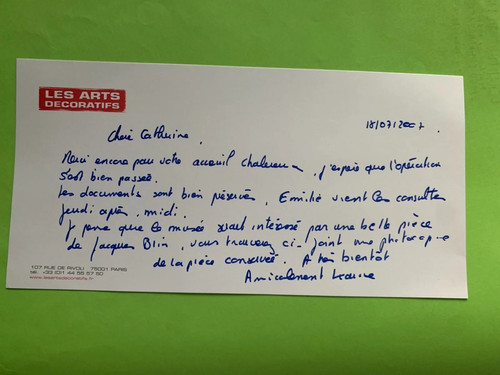 LES ARTS
DECORATIFS
18/07/2007.
Chère Catherine,
Merci encore pour votre accueil chaleureux, j'espère que l'opération
s'est bien passée.
Les documents sont bien réservés, Emilie vient les consulter
jeudi après-midi.
Je pense que le musée serait intéressé par une belle pièce
de Jacques Blin, vous trouverez ci-joint une photocopie
de la pièce conservée. A très bientôt
Amicalement
107 RUE DE RIVOLI 75001 PARIS
tél. +33 (0)1 44 55 57 50
www.lesartsdecoratifs.fr